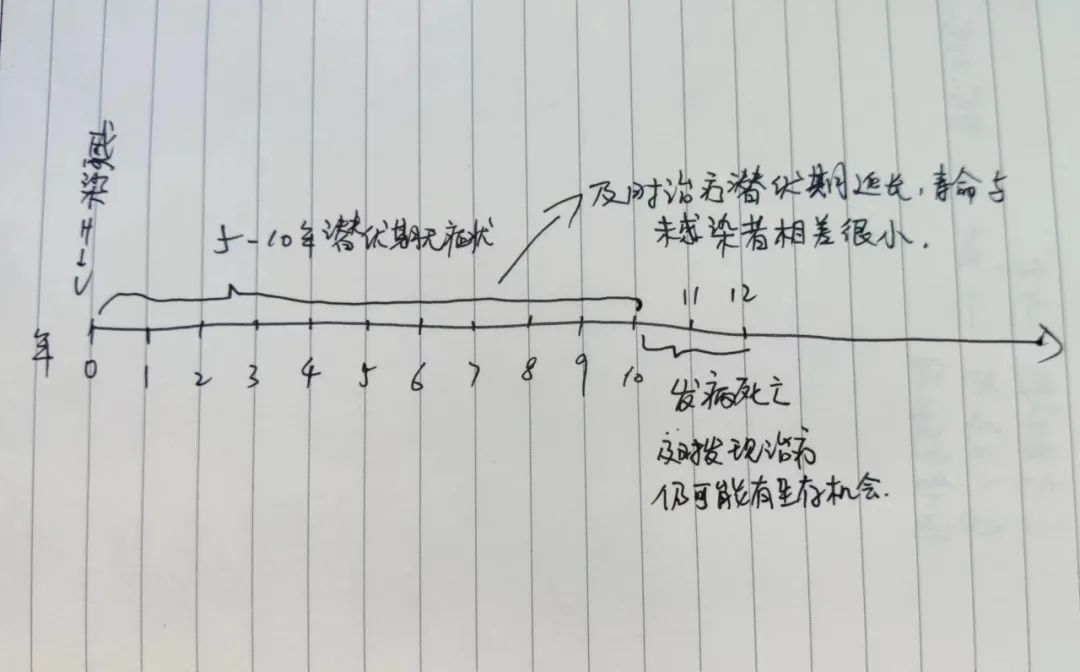 感染
5-10年潜伏期无症状
及时治疗潜伏期延长,寿命与
未感染者相差很小.
11 12
年
0 1 2 3 4 5 6 7 8 9 10
发病死亡
及时发现治疗
仍可能有生存机会.